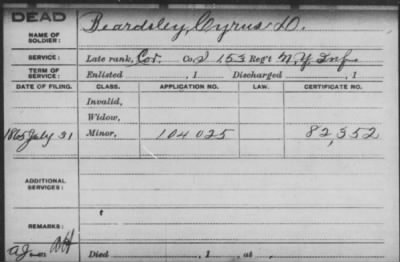 DEAD
NAME OF SOLDIER: Beardsley, Cyrus D.
SERVICE: Late rank, Cor. Co. D 153 Reg't N.Y. Inf.
TERM OF SERVICE: Enlisted , 1 Discharged , 1
DATE OF FILING. CLASS. APPLICATION NO. LAW. CERTIFICATE NO.
Invalid,
Widow,
1865 July 31 Minor, 104025 82,352
ADDITIONAL SERVICES:
REMARKS:
Died , 1 , at ,